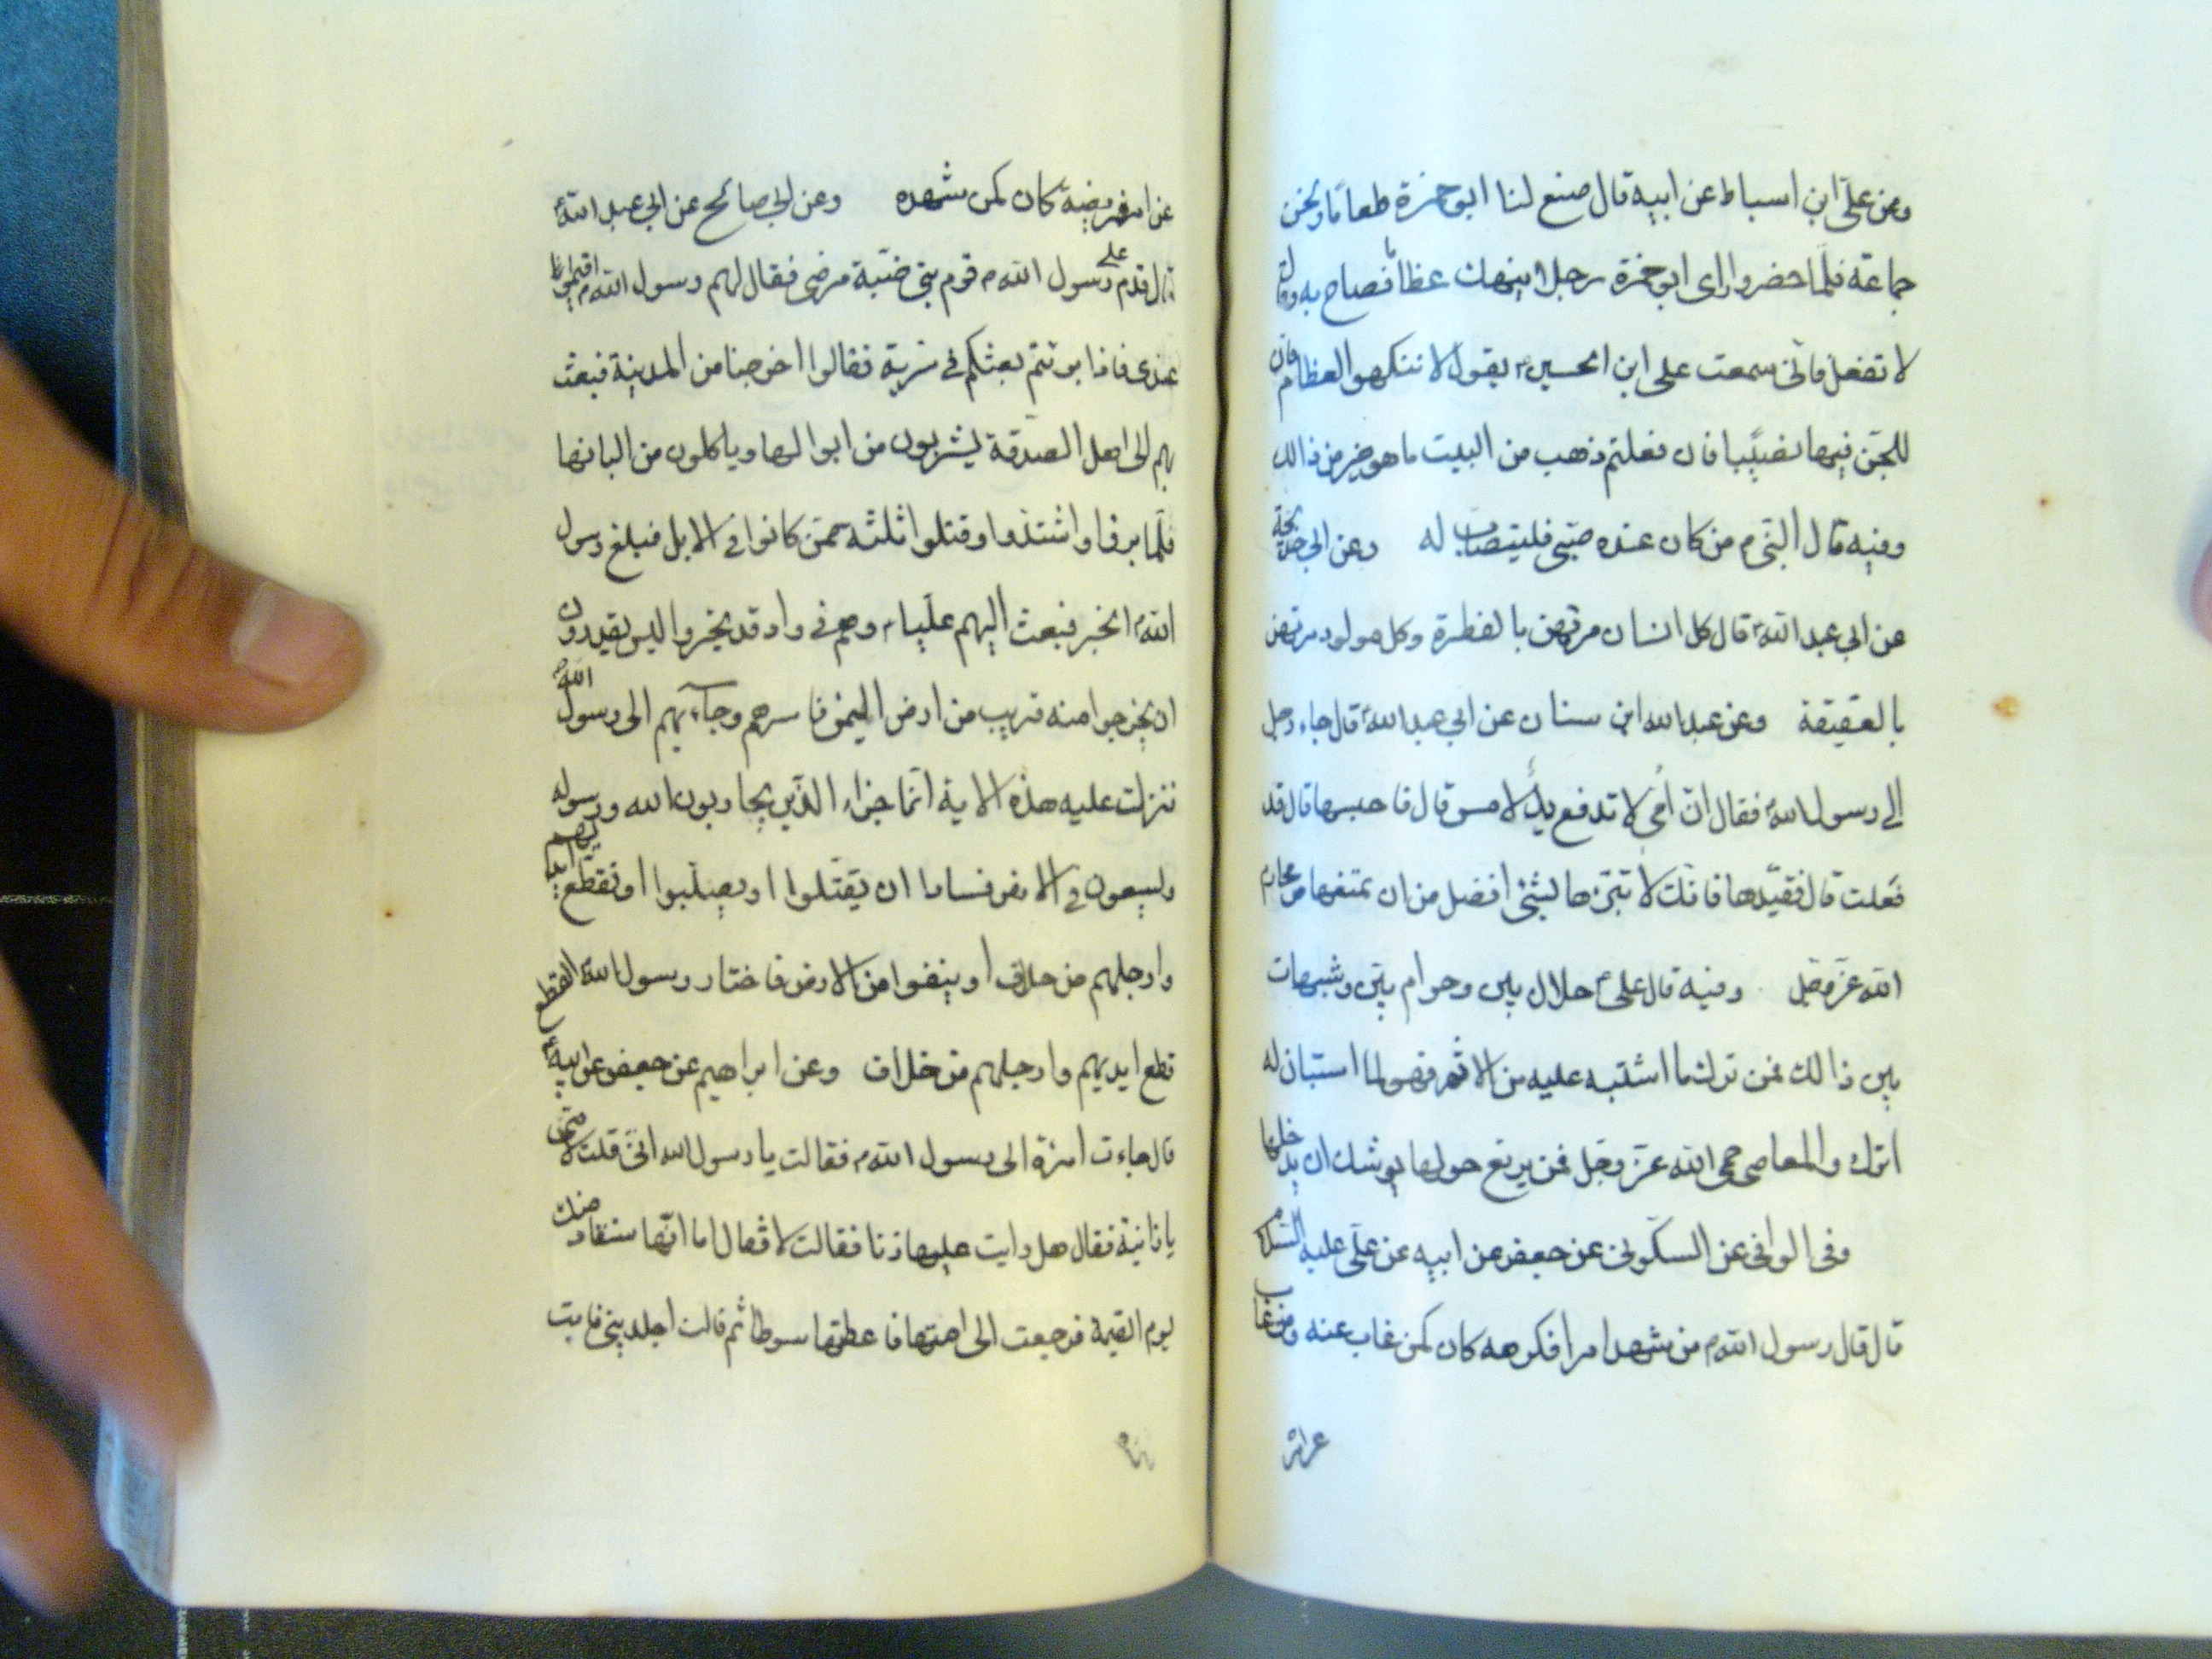 وعن علي ابن اسباط عن ابيه قال صنع لنا ابو حمزة طعاما ونحن
جماعة فلما حضروا راى ابو حمزة رجلا ينهك عظاما فصاح به وقال
لا تفعل فاني سمعت علي ابن الحسين ع يقول لا تنهكوا العظام فان
للجن فيها نصيبا فان فعلتم ذهب من البيت ما هو خير من ذالك
وفيه قال النبي ص من كان عنده صبي فليتصاب له وعن ابي خديجة
عن ابي عبد الله ع قال كل انسان مرتهن بالفطرة وكل مولود مرتهن
بالعقيقة وعن عبد الله ابن سنان عن ابي عبد الله ع قال جاء رجل
الى رسول الله فقال ان امي لا تدفع يد لامس قال فاحبسها قال قد
فعلت قال فقيدها فانك لا تبرها بشئ افضل من ان تمنعها من محارم
الله عز وجل وفيه قال علي ع حلال بين وحرام بين وشبهات
بين ذالك فمن ترك ما اشتبه عليه من الاثم فهو لما استبان له
اترك والمعاصي حمى الله عز وجل فمن يرتع حولها يوشك ان يدخلها
وفي الوافي عن السكوني عن جعفر عن ابيه عن علي عليه السلام
قال قال رسول الله ص من شهد امرا فكرهه كان كمن غاب عنه ومن غاب
عن امر فرضيه كان كمن شهده وعن ابي صالح عن ابي عبد الله ع
قال قدم على رسول الله ص قوم بني ضبة مرضى فقال لهم رسول الله ص اقيموا
عندي فاذا برئتم بعثتكم في سرية فقالوا اخرجنا من المدينة فبعث
بهم الى اهل الصدقة يشربون من ابوالها وياكلون من البانها
فلما برؤا واشتدوا وقتلوا ثلثه ممن كانوا في الابل فبلغ رسول
الله ص الخبر فبعث اليهم عليا ع وهم في واد قد تحيروا ليس يقدرون
ان يخرجوا منه قريب من ارض اليمن فاسرهم وجاء بهم الى رسول الله ص
فنزلت عليه هذه الاية انما جزاء الذين يحاربون الله ورسوله
ويسعون في الارض فسادا ان يقتلوا او يصلبوا او تقطع ايديهم
وارجلهم من خلاف او ينفوا من الارض فاختار رسول الله القطع
قطع ايديهم وارجلهم من خلاف وعن ابراهيم عن جعفر عن ابيه ع
قال جاءت امرئة الى رسول الله ص فقالت يا رسول الله اني قلت لامتي
يا زانية فقال هل رايت عليها زنا فقالت لا فقال اما انها ستقاد منك
يوم القيمة فرجعت الى امتها فاعطتها سوطا ثم قالت اجلديني فابت